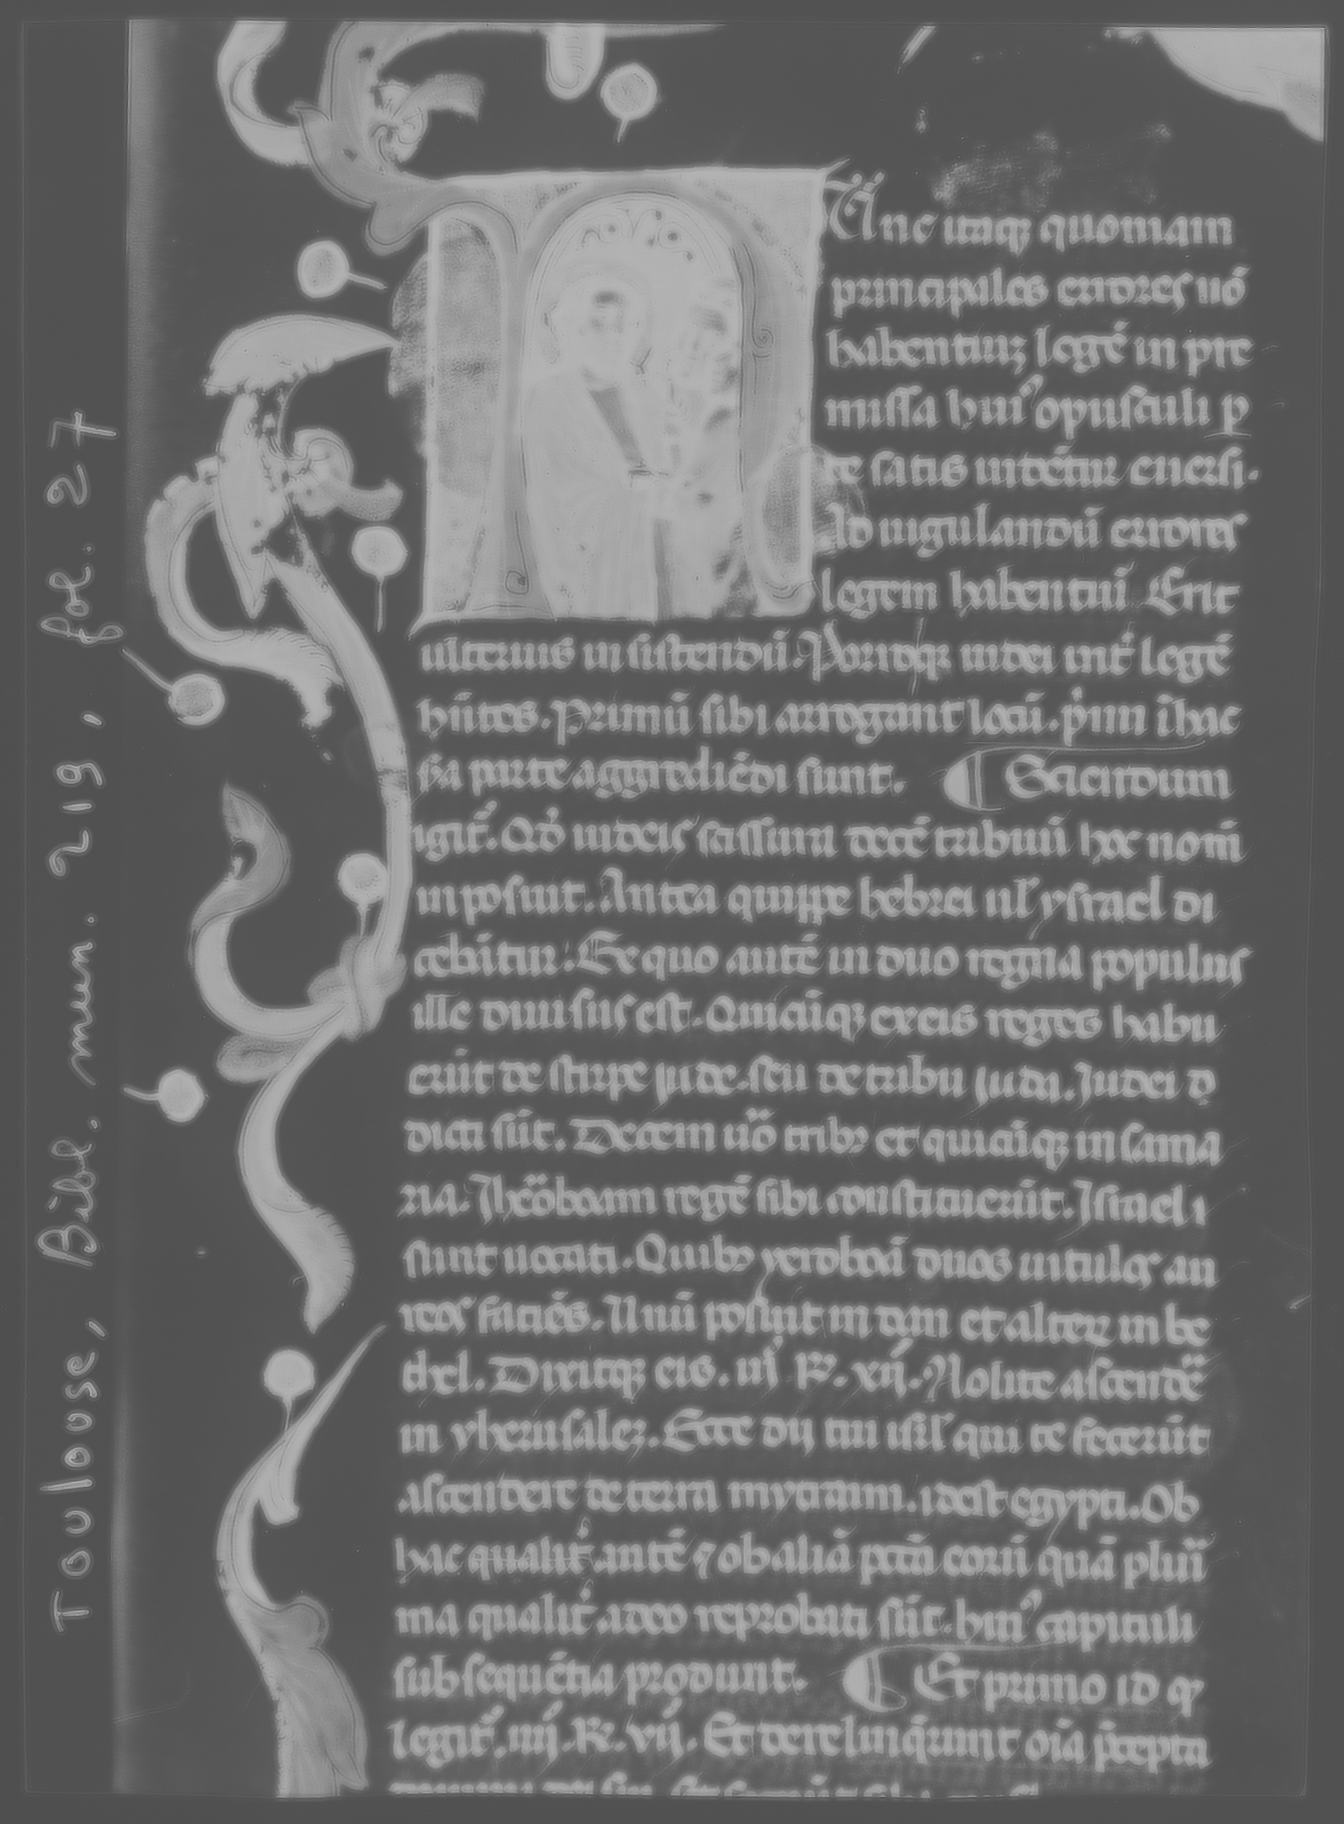 Toulouse, Bibl. mun. 219, fol. 27
Nunc itaq; quoniam
principales errores nō
habentiuȝ legē in pre
missa huiꝰ opusculi p
te satis uidētur euersi.
Ad iugulandū errores
legem habentiū Erit
ulterius insistendū. Porroq; iudei int̄ legē
hn̄tes. Primū sibi arrogant locū. p̄mi ī hac
s̄a parte aggrediēdi sunt. ¶ Sciendum
igit̄. Qd̄ iudeis scissura decē tribuū hoc nom̄
inposuit. Antea quippe hebrei ul̄ ysrael di
cebātur. Ex quo autē in duo regna populus
ille diuisus est. Quicūq; ex eis reges habu
erūt de stirpe iude. seu de tribu iuda. Iudei
dicti sūt. Decem uō tribꝫ et quicūq; in sama
ria. Iheroboam regē sibi constituerūt. Israel
sunt uocati. Quibꝫ yeroboā duos uitulos au
reos faciēs. Unū posuit in dan et alterꝫ in be
thel. Dixitq; eis. iii R. xii. Nolite ascendē
in yherusaleȝ. Ecce dij tui isrl̄ qui te fecerūt
ascendere de terra mycraim. idest egypti. Ob
hac qualit̄ antē ⁊ ob aliā pctā eorū quā plurī
ma qualit̄ adeo reprobati sūt. huiꝰ capituli
subsequētia produnt. ¶ Et primo id qꝫ
legit̄. iiij. R. vij. Et dereliṅqrunt oīa p̄cepta